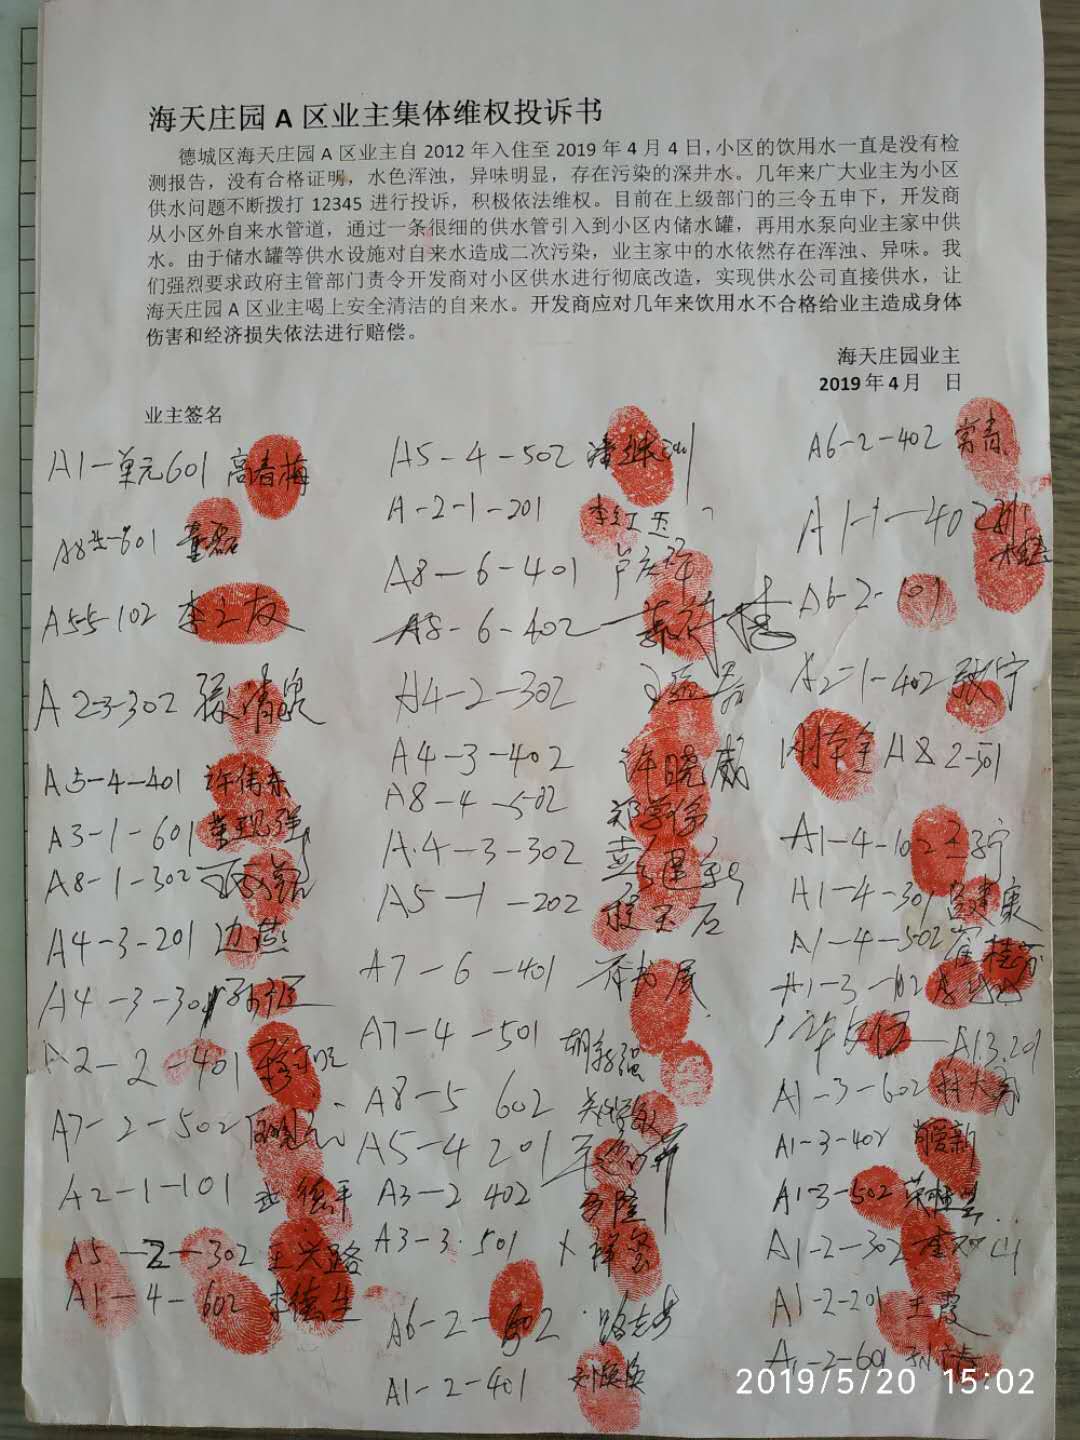 海天庄园 A 区业主集体维权投诉书
德城区海天庄园 A 区业主自 2012 年入住至 2019 年 4 月 4 日,小区的饮用水一直是没有检
测报告，没有合格证明，水色浑浊，异味明显，存在污染的深井水。几年来广大业主为小区
供水问题不断拨打 12345 进行投诉，积极依法维权。目前在上级部门的三令五申下，开发商
从小区外自来水管道，通过一条很细的供水管引入到小区内储水罐，再用水泵向业主家中供
水。由于储水罐等供水设施对自来水造成二次污染，业主家中的水依然存在浑浊、异味。我
们强烈要求政府主管部门责令开发商对小区供水进行彻底改造，实现供水公司直接供水，让
海天庄园 A 区业主喝上安全清洁的自来水。开发商应对几年来饮用水不合格给业主造成身体
伤害和经济损失依法进行赔偿。
海天庄园业主
2019 年 4 月 日
业主签名
A1一单元601 高春梅
A8-601 董磊
A5-5-102 李之友
A2-3-302 张清泉
A5-4-401 许伟东
A3-1-601
A8-1-302
A4-3-201 边燕
A4-3-301
A2-2-401
A7-2-502
A2-1-101
A5-2-302 王兴路
A1-4-602 李德生
A5-4-502
A-2-1-201 李红玉
A8-6-401
A8-6-402
A4-2-302
A4-3-402 许晓威
A8-4-502
A.4-3-302
A5-1-202 程玉石
A7-6-401
A7-4-501 胡新强
A8-5 602
A5-4 201
A3-2 402
A3-3.501
A6-2-802
A1-2-401
A6-2-402 常青
A1-1-402
A6-2-101
A2-1-402 张宁
A8 2-501
A1-4-102
A1-4-301
A1-4-502 崔桂芳
A1-3-102
A1.3.201
A1-3-602
A1-3-402 肖爱新
A1-3-502
A1-2-302
A1-2-201 王霞
A1-2-601
2019/5/20 15:02